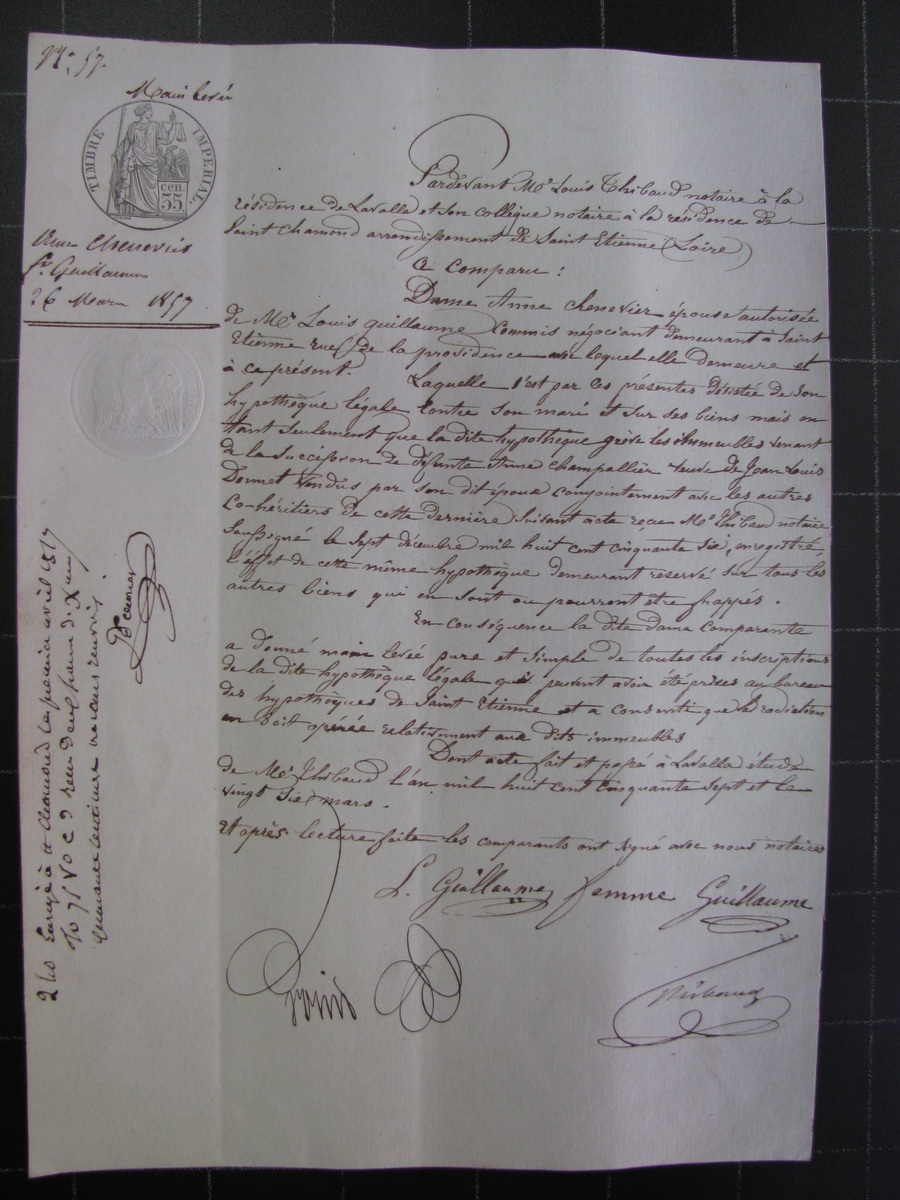 N° 57.
Main levée
TIMBRE IMPERIAL.
cen.
35
Anne Chenevier
fe Guillaume
26 Mars 1857
Pardevant Me Louis Thibaud notaire à la
résidence de Lavalla et son collègue notaire à la résidence de
Saint Chamond arrondissement de Saint Etienne (Loire)
a comparu :
Dame Anne Chenevier épouse autorisée
de Mr Louis Guillaume commis négociant demeurant à Saint
Etienne rue de la providence avec lequel elle demeure et
à ce présent.
Laquelle s'est par ces présentes désistée de son
hypothèque légale contre son mari et sur ses biens mais en
tant seulement que la dite hypothèque grève les immeubles venant
de la succession de défunte Anne Champallier veuve de Jean Louis
vendus par son dit époux conjointement avec les autres
co-héritiers de cette dernière suivant acte reçu Me Thibaud notaire
soussigné le sept décembre mil huit cent cinquante six, enregistré,
l'effet de cette même hypothèque demeurant réservé sur tous les
autres biens qui en sont ou pourront être frappés.
En conséquence la dite dame comparante
a donné main levée pure et simple de toutes les inscriptions
de la dite hypothèque légale qui peuvent avoir été prises au bureau
des hypothèques de Saint Etienne et a consenti que la radiation
en soit opérée relativement aux dits immeubles
Dont acte fait et passé à Lavalla étude
de Me Thibaud l'an mil huit cent cinquante sept et le
vingt six mars.
Et après lecture faite les comparants ont signé avec nous notaires
L. Guillaume femme Guillaume
Thibaud
Enregé à St Chamond le premier avril 1857
fo 75 Vo C 9 reçu deux francs Xmes
quarante centimes